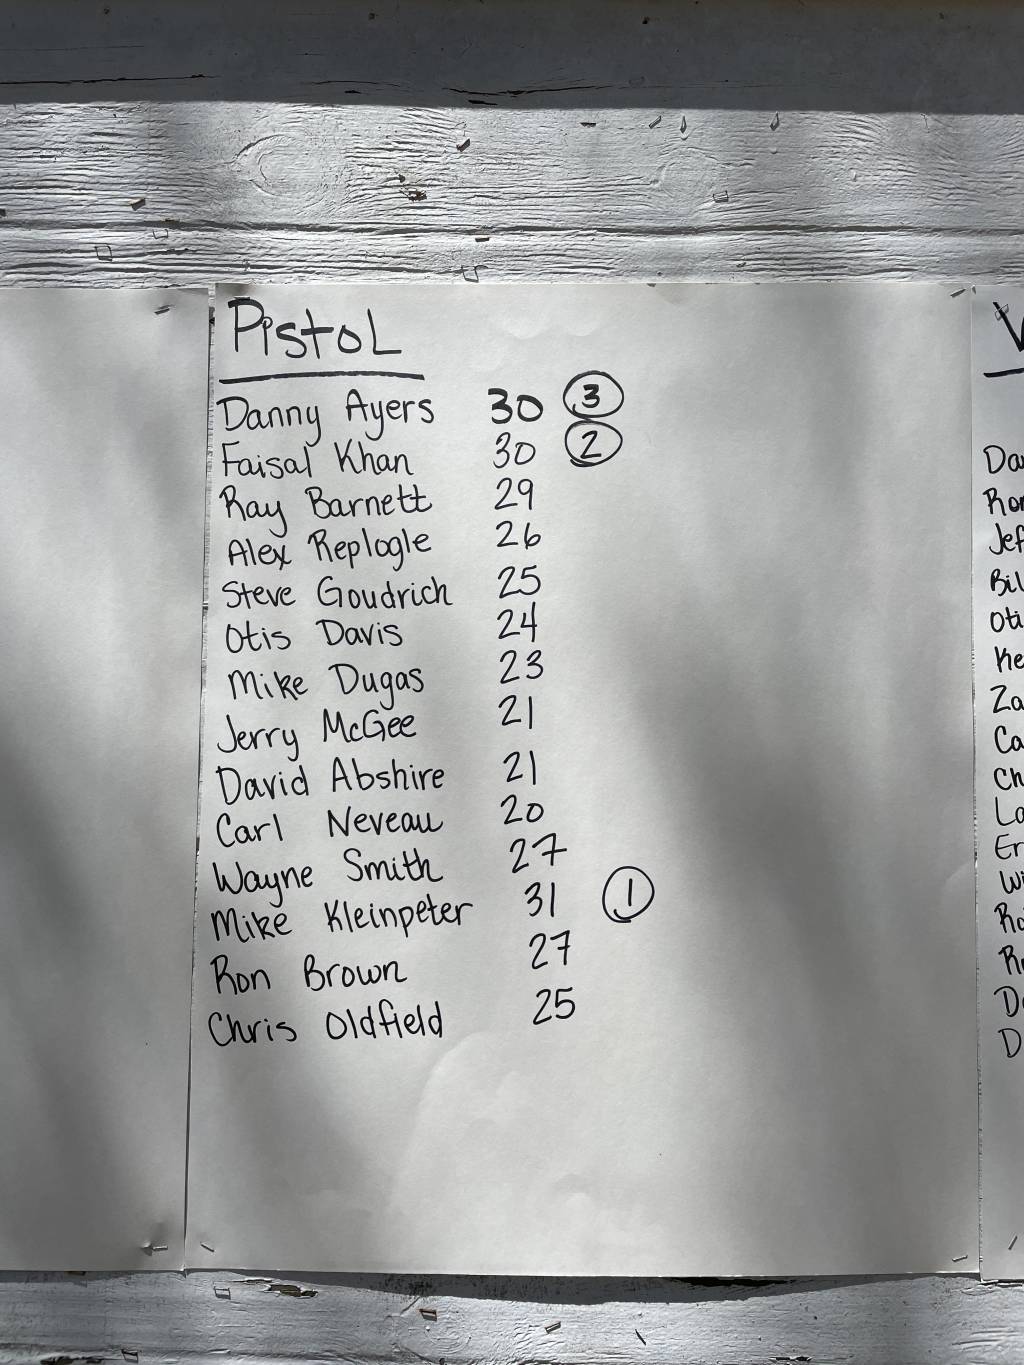 Pistol
Danny Ayers 30 3
Faisal Khan 30 2
Ray Barnett 29
Alex Replogle 26
Steve Goudrich 25
Otis Davis 24
Mike Dugas 23
Jerry McGee 21
David Abshire 21
Carl Neveau 20
Wayne Smith 27
Mike Kleinpeter 31 1
Ron Brown 27
Chris Oldfield 25